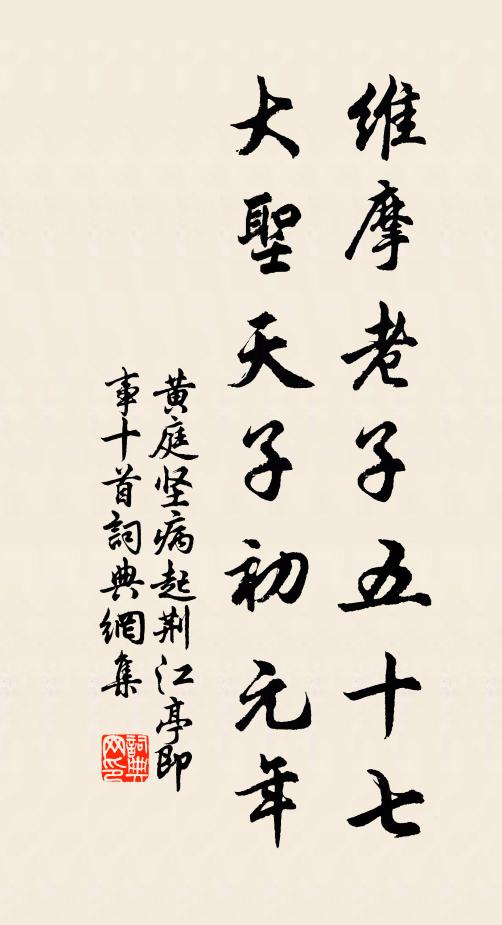 維摩老子五十七
大聖天子初元年
黄庭坚病起荆江亭即
事十首詞典網集
詞典
网印